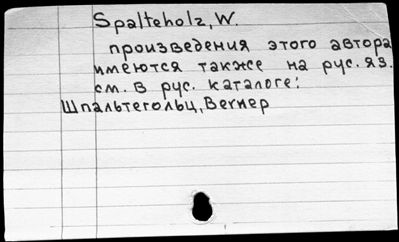 Spalteholz, W.
произведения этого автора
имеются также на рус. яз.
см. в рус. каталоге:
Шпальтегольц, Вернер